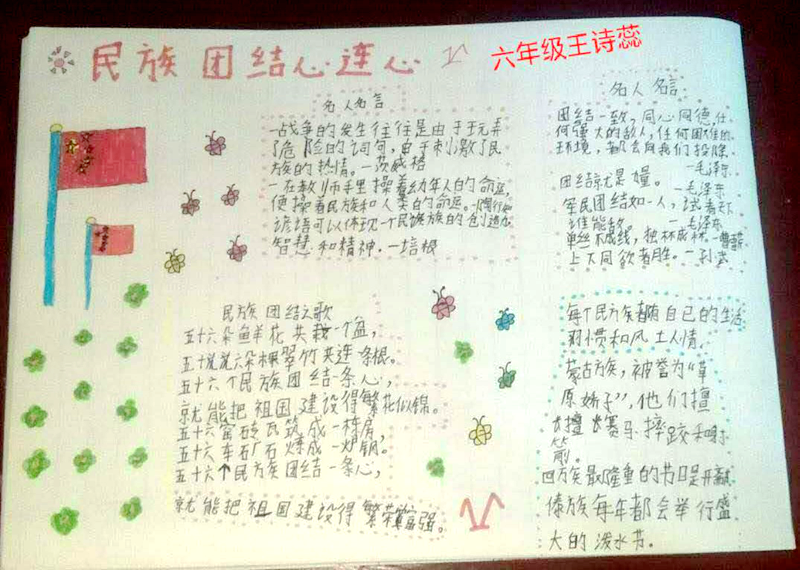 民族团结心连心
六年级王诗蕊
名人名言
战争的发生往往是由于玩弄
了危险的词句,由于刺激了民
族的热情。一茨威格
一在教师手里操着幼年人的命运,
便操着民族和人类的命运。一陶行知
谚语可以体现一个民族的创造力
智慧和精神。一培根
名人名言
团结一致,同心同德,任
何强大的敌人,任何困难的
环境,都会向我们投降
一毛泽东
团结就是力量。
一毛泽东
军民团结如一人,试看天下
谁能敌。一毛泽东
单丝不成线,独林成林。
上下同欲者胜。一孙武
民族团结之歌
五十六朵鲜花共栽一个盆,
五十六棵翠竹共连一条根。
五十六个民族团结一条心,
就能把祖国建设得繁花似锦。
五十六窑砖瓦筑成一栋房,
五十六车矿石炼成一炉钢。
五十六个民族团结一条心,
就能把祖国建设得繁荣富强。
每个民族都有自己的生活
习惯和风土人情。
蒙古族,被誉为“草
原娇子”,他们擅
长赛马摔跤和射
箭。
回族最隆重的节日是开斋
傣族每年都会举行盛
大的泼水节。